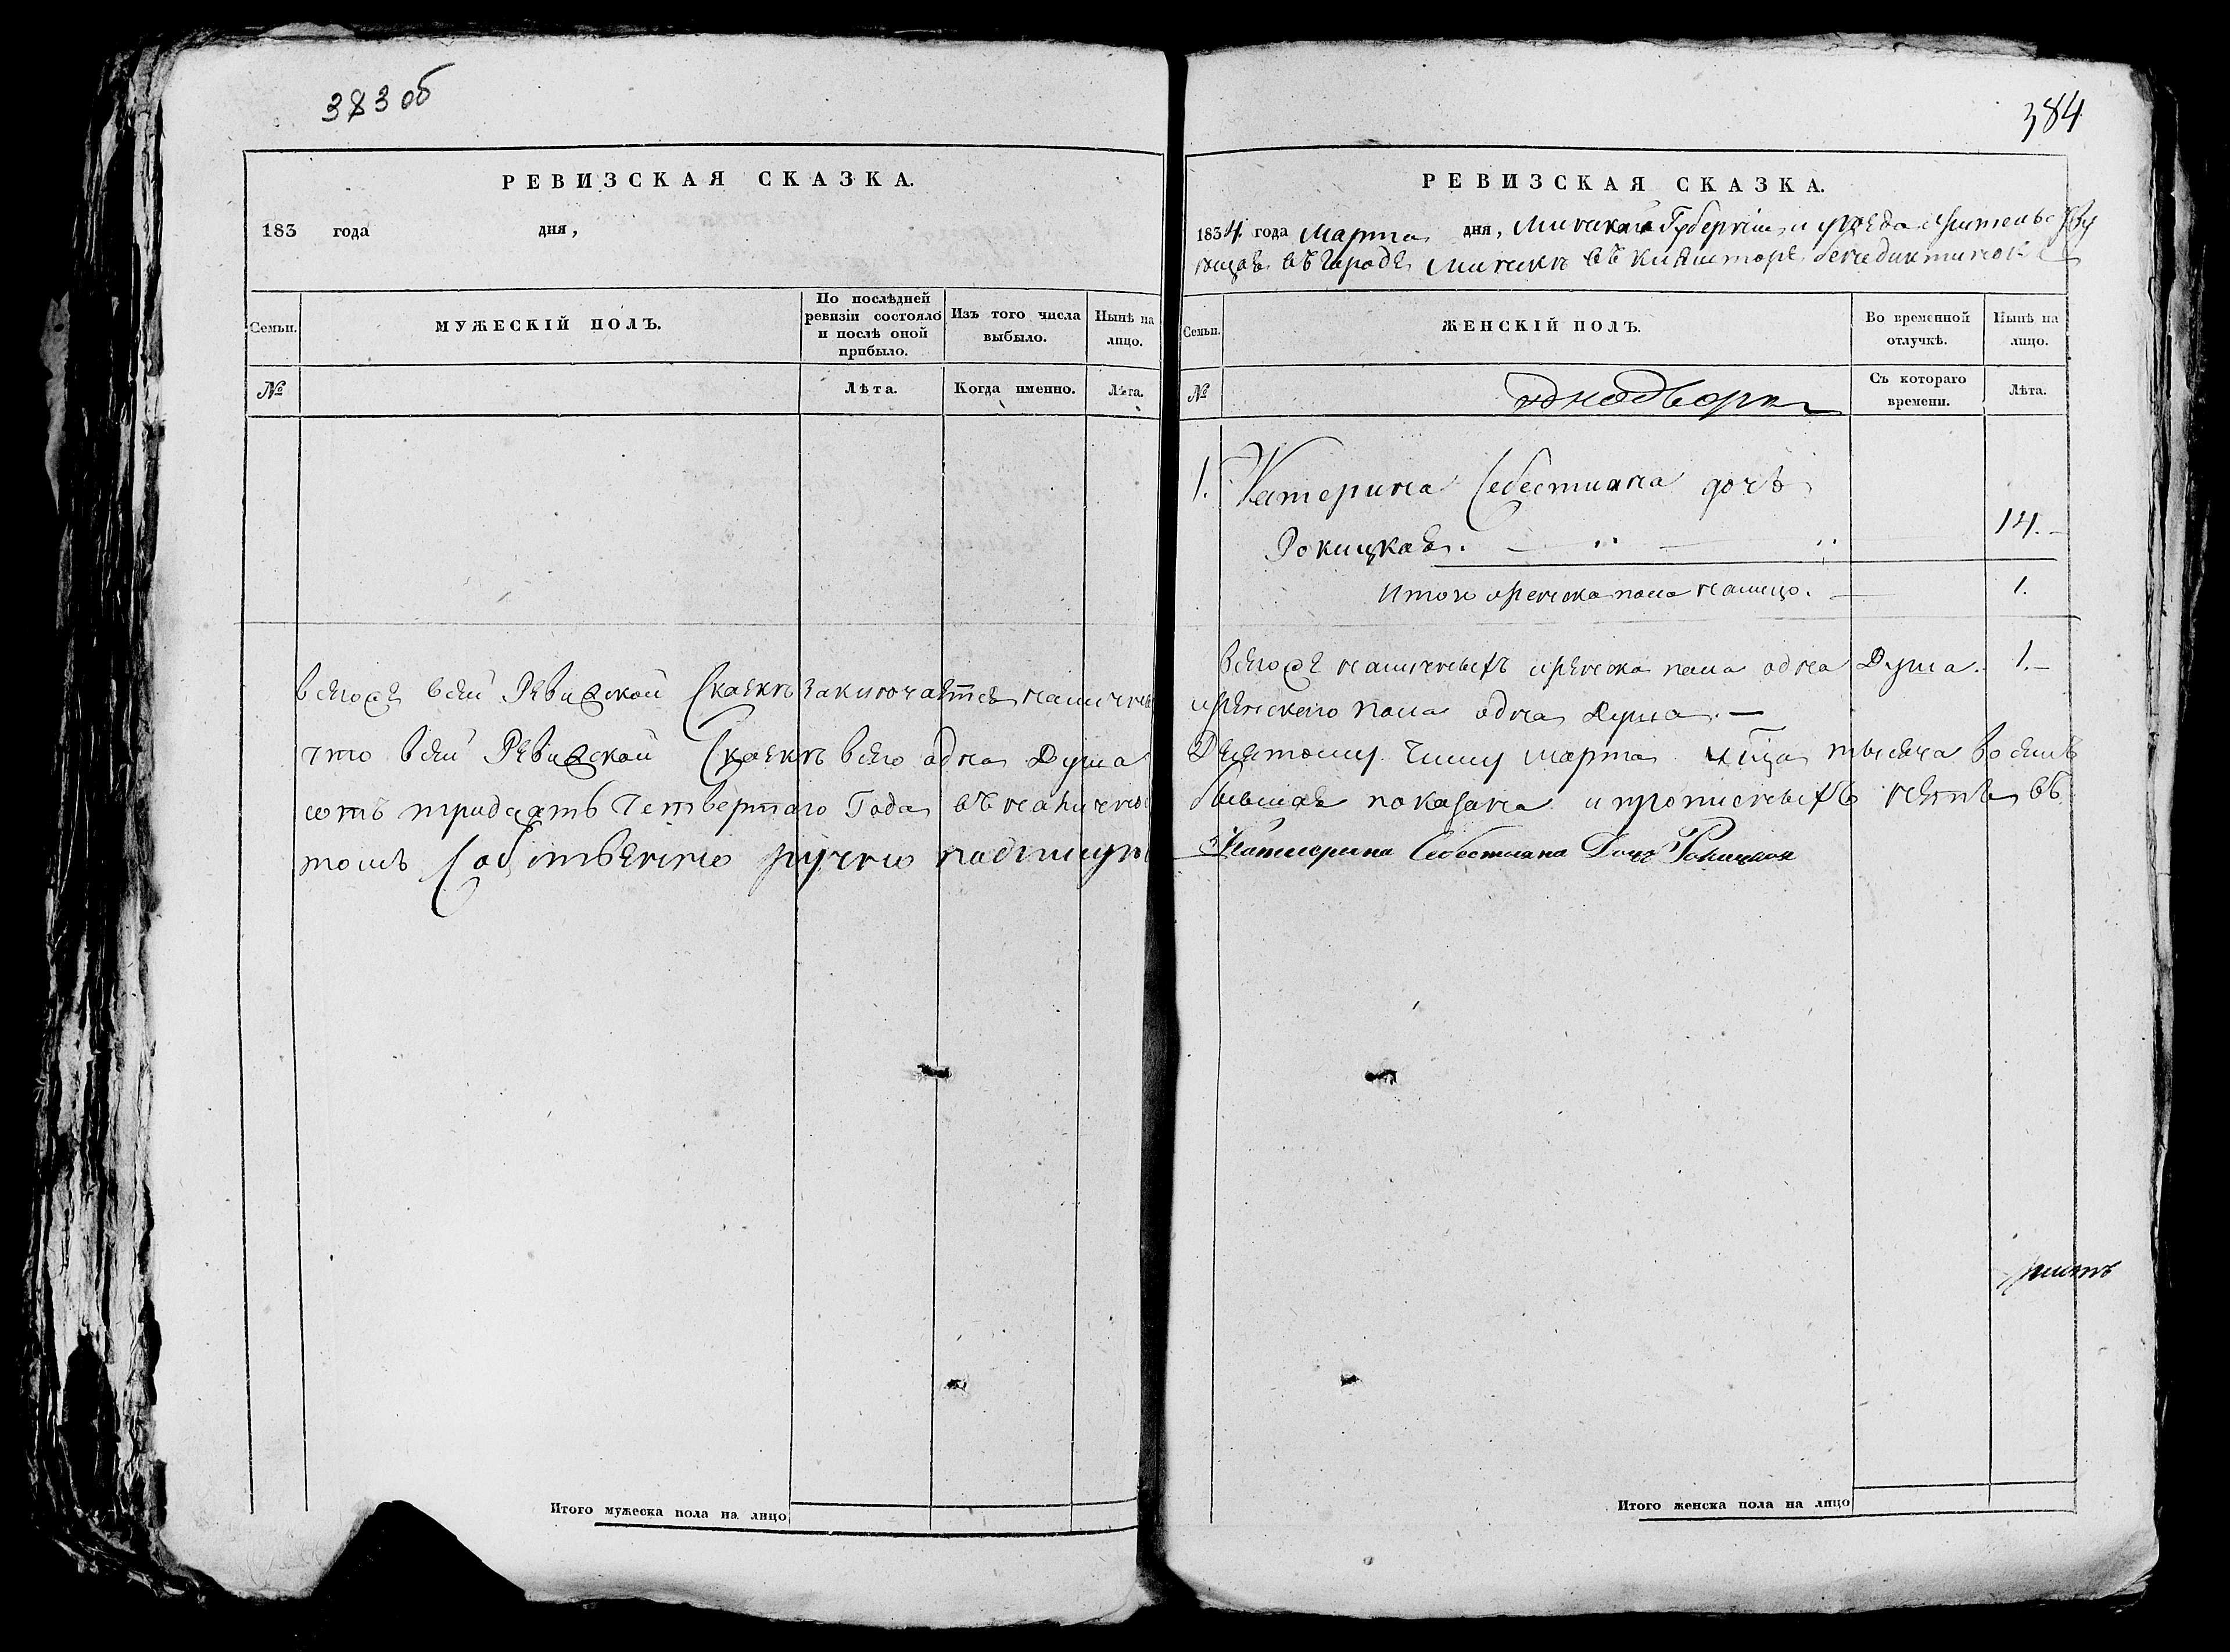 383 об
РЕВИЗСКАЯ СКАЗКА.
183 года дня,
Семьи.
МУЖЕСКІЙ ПОЛЪ.
По послѣдней ревизіи состояло и послѣ оной прибыло.
Изъ того числа выбыло.
Нынѣ на лицо.
№
Лѣта.
Когда именно.
Лѣта.
всего въ сей Ревизской Сказкѣ заключается налични
что въ сей Ревизской Сказкѣ всего одна Душа
сотъ тридцать Четвертаго Года въ
томъ Собственно ручно подпишу
Итого мужеска пола на лицо
384
РЕВИЗСКАЯ СКАЗКА.
1834 года Марта дня, Минской Губерніи и уезда
въ городе Минске въ кляшторе бенедиктинок
Семьи.
ЖЕНСКІЙ ПОЛЪ.
Во временной отлучкѣ.
Нынѣ на лицо.
№
однодворки
Съ котораго времени.
Лѣта.
1. Катерина Себестиана дочь
Рокицкая. 14.
Итого женска пола налицо. 1.
всего наличныхъ женска пола одна Душа. 1.
женского пола одна Душа.
Десятому числу марта тысяча восемь
показана и прописныхъ нетъ въ
Катерина Себестиана Дочь Рокицкая
Итого женска пола на лицо